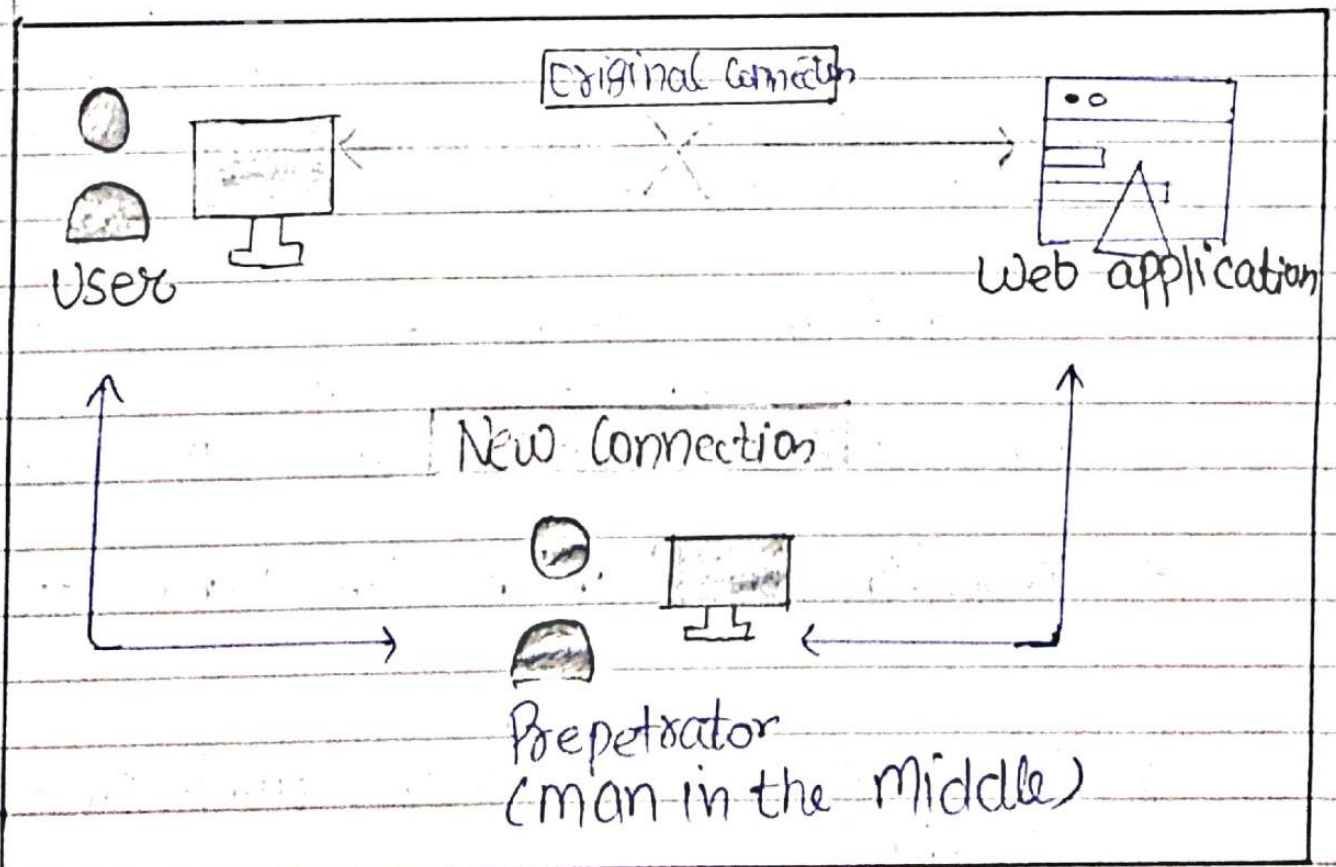 Original Connection
User
Web application
New Connection
Prepetrator
(man in the Middle)